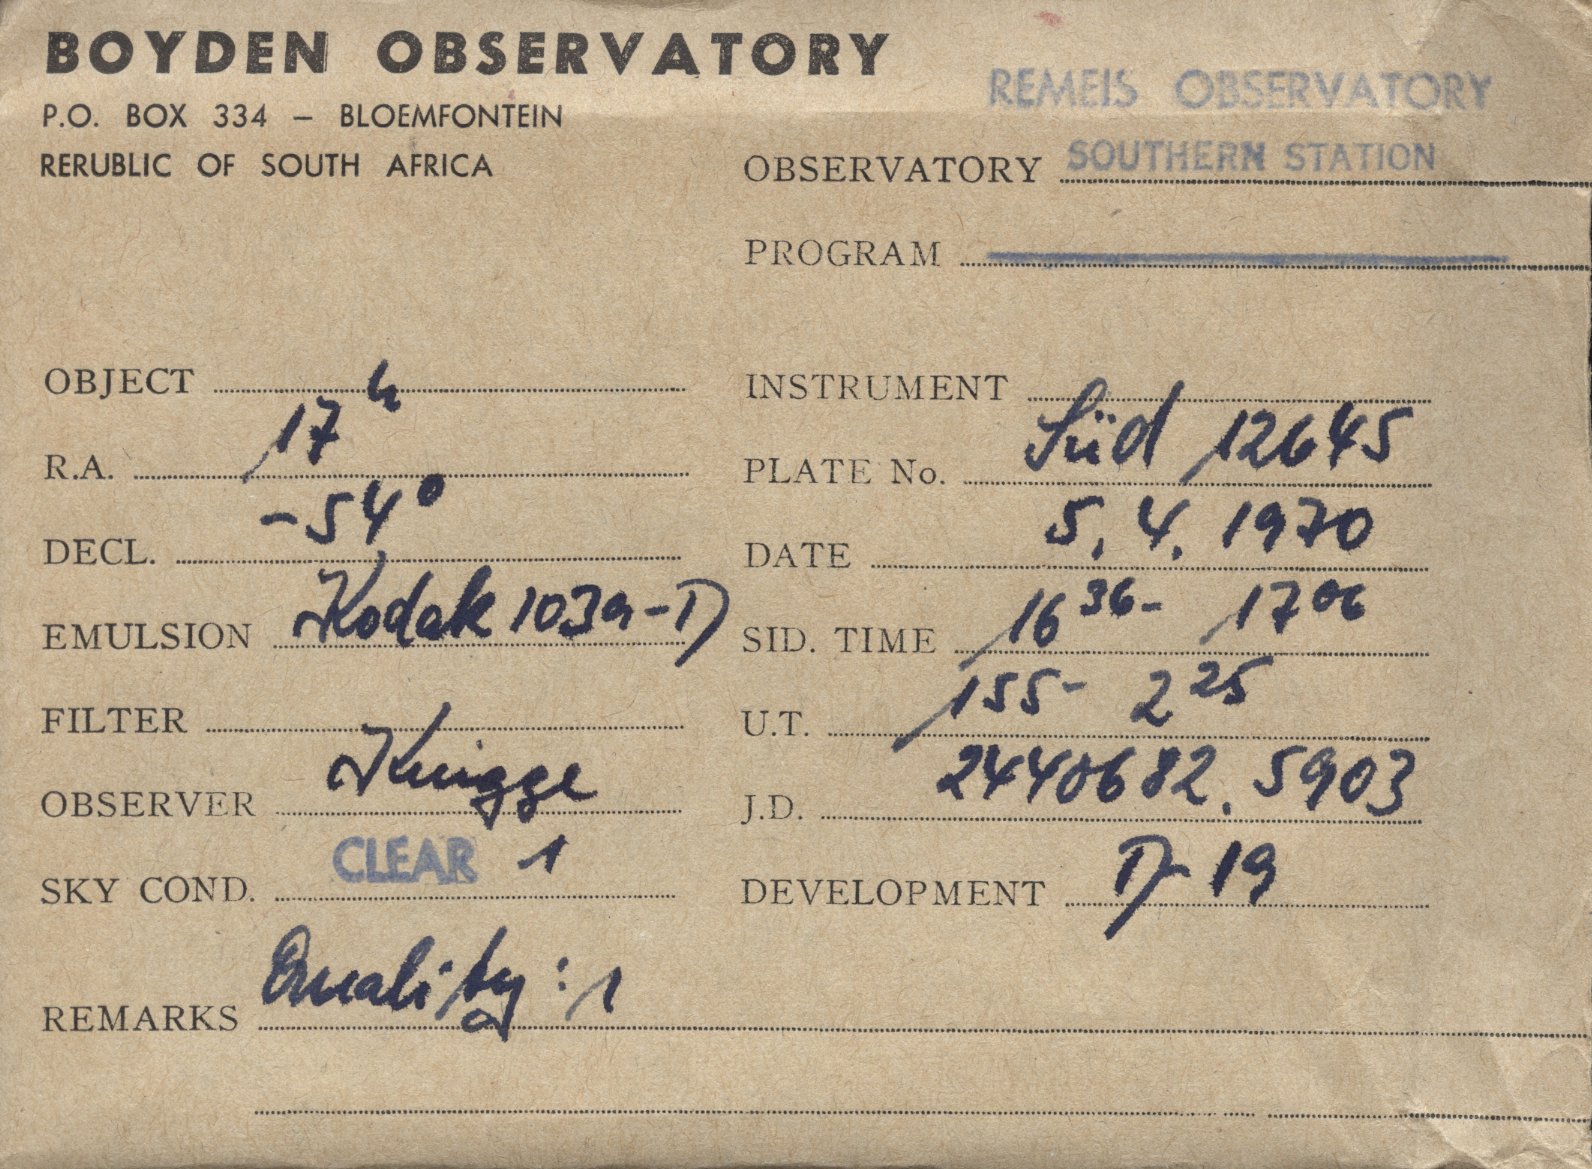 BOYDEN OBSERVATORY
P.O. BOX 334 – BLOEMFONTEIN
RERUBLIC OF SOUTH AFRICA
REMEIS OBSERVATORY
OBSERVATORY SOUTHERN STATION
PROGRAM
OBJECT
INSTRUMENT
R.A. 17h
PLATE No. Süd 12645
DECL. -54°
DATE 5. 4. 1970
EMULSION Kodak 103a-D
SID. TIME 16 36 - 17 06
FILTER
U.T. 155- 2 25
OBSERVER Knigge
J.D. 2440682.5903
SKY COND. CLEAR 1
DEVELOPMENT D-19
REMARKS Quality: 1